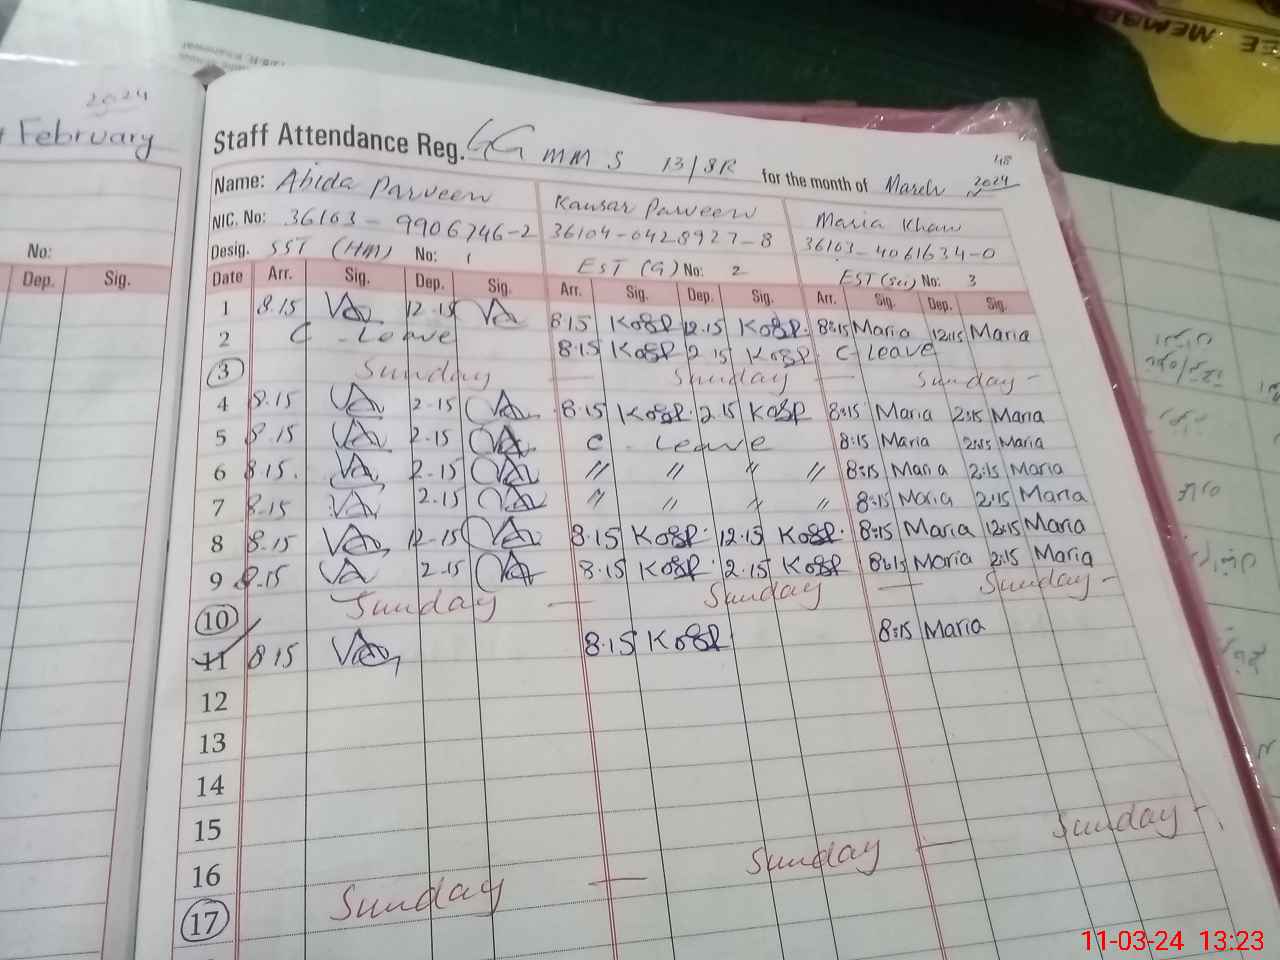 2024
February
No:
Dep. Sig.
Staff Attendance Reg. GG mm S 13/8R for the month of March 2024
48
Name: Abida Parveen Kausar Parveen Maria Khan
NIC. No: 36103-9906746-2 36104-0428927-8 36103-4061634-0
Desig. SST (HM) No: 1 EST (G) No: 2 EST (Sci) No: 3
Date Arr. Sig. Dep. Sig. Arr. Sig. Dep. Sig. Arr. Sig. Dep. Sig.
1 8.15 12.15 8.15 12.15 8:15 Maria 12:15 Maria
2 C-Leave 8.15 2.15 C-Leave
3 Sunday — Sunday — Sunday -
4 8.15 2.15 8.15 2.15 8:15 Maria 2:15 Maria
5 8.15 2.15 C-Leave 8:15 Maria 2:15 Maria
6 8.15. 2.15 " " " " 8:15 Maria 2:15 Maria
7 8.15 2.15 " " " " 8:15 Maria 2:15 Maria
8 8.15 12.15 8.15 12.15 8:15 Maria 12:15 Maria
9 8.15 2.15 8.15 2.15 8:15 Maria 2:15 Maria
10 Sunday — Sunday — Sunday -
11 8.15 8.15 8:15 Maria
12
13
14
15
16
17 Sunday — Sunday — Sunday -
11-03-24 13:23